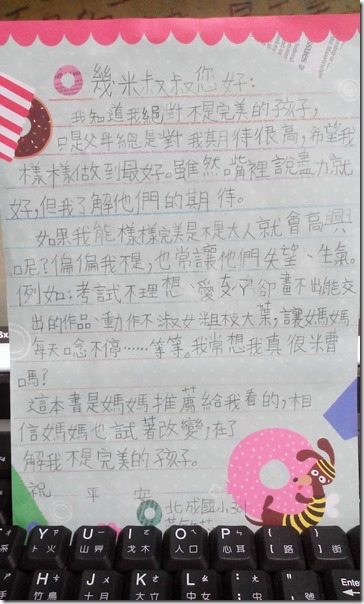 幾米叔叔您好：
我知道我絕對不是完美的孩子，
只是父母總是對我期待很高，希望我
樣樣做到最好。雖然嘴裡說盡力就
好，但我了解他們的期待。
如果我能樣樣完美是不是大人就會高興
呢？偏偏我不是，也常讓他們失望、生氣。
例如：考試不理想、愛 卻畫不出能交
出的作品、動作不淑女粗枝大葉，讓媽媽
每天唸不停……等等。我常想我真很糟
嗎？
這本書是媽媽推薦給我看的，相
信媽媽也試著改變，在了
解我不是完美的孩子。
祝 平 安
北成國小301
Y ㄗ U ㄧ I ㄛ O ㄟ P ㄣ { 「 } 」
卜 火 山 艸 戈 木 人 口 心 耳 [ 路 ] 街
H ㄘ J ㄨ K ㄜ L ㄠ : ; "
竹 鳥 十 月 大 立 中 女
Enter